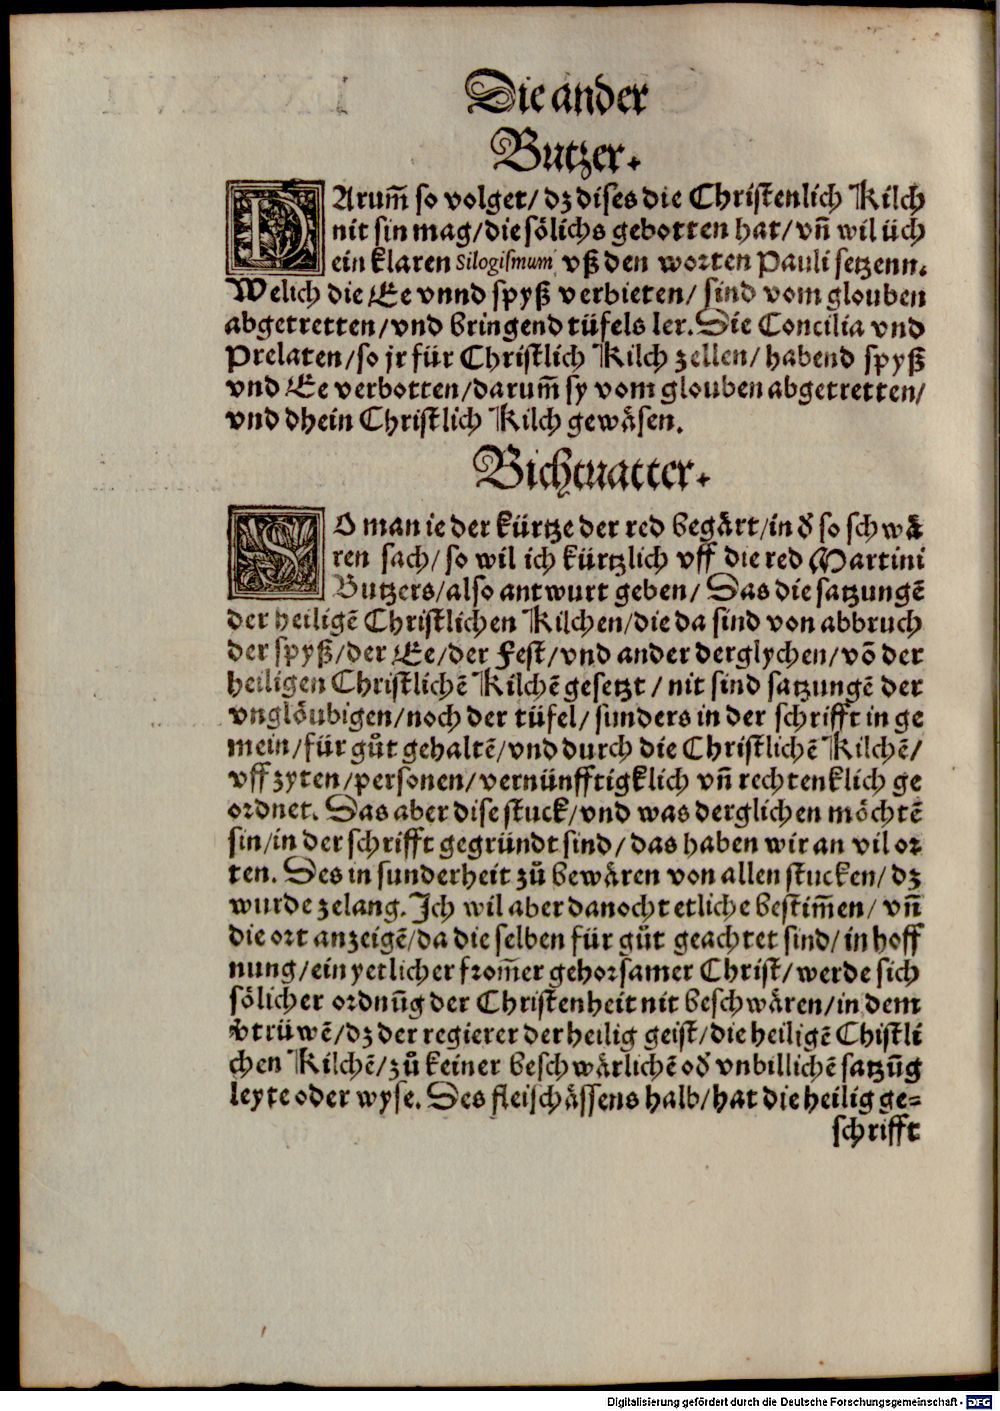 Die ander
Butzer.
DArum̃ so volget/ dz dises die Christenlich Kilch
nit sin mag/die sölichs gebotten hat/ vñ wil üch
ein klaren Silogismum vß den worten Pauli setzenn.
Welich die Ee vnnd spyß verbieten/ sind vom glouben
abgetretten/vnd bringend tüfels ler. Die Concilia vnd
Prelaten/so jr für Christlich Kilch zellen/ habend spyß
vnd Ee verbotten/darum̃ sy vom glouben abgetretten/
vnd dhein Christlich Kilch gewäsen.
Bichtuatter.
SO man ie der kürtze der red begärt/in d̕ so schwä
ren sach/ so wil ich kürtzlich vff die red Martini
Butzers/also antwurt geben/ Das die satzungẽ
der heiligẽ Christlichen Kilchen/die da sind von abbruch
der spyß/der Ee/der Fest/vnd ander derglychen/võ der
heiligen Christlichẽ Kilchẽ gesetzt / nit sind satzungẽ der
vnglöubigen/noch der tüfel/ sunders in der schrifft in ge
mein/für gůt gehaltẽ/vnd durch die Christlichẽ Kilchẽ/
vff zyten/personen/vernünfftigklich vñ rechtenklich ge
ordnet. Das aber dise stuck/vnd was derglichen möchtẽ
sin/in der schrifft gegründt sind/ das haben wir an vil or
ten. Des in sunderheit zů bewären von allen stucken/ dz
wurde zelang. Ich wil aber danocht etliche bestim̃en/ vñ
die ort anzeigẽ/da die selben für gůt geachtet sind/ in hoff
nung/ein yetlicher from̃er gehorsamer Christ/werde sich
sölicher ordnũg der Christenheit nit beschwären/in dem
v̕trüwẽ/dz der regierer der heilig geist/die heiligẽ Chistli
chen Kilchẽ/zů keiner beschwärlichẽ od̕ vnbillichẽ satzũg
leyte oder wyse. Des fleischässens halb/hat die heilig ge=
schrifft
Digitalisierung gefördert durch die Deutsche Forschungsgemeinschaft - DFG